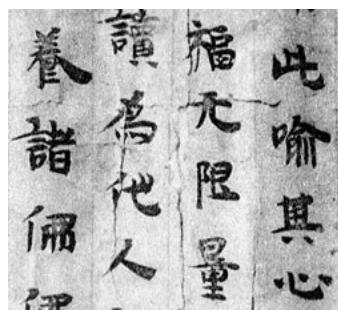 此喻其心
福无限量
讀為他人
養諸佛